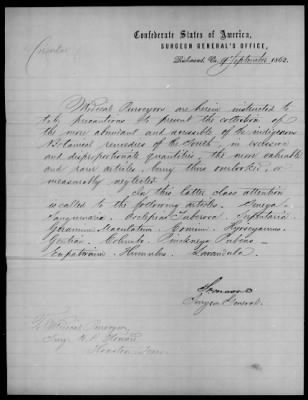 Circular
Confederate States of America,
SURGEON GENERAL'S OFFICE,
Richmond, Va., 9th September 1862.
Medical Purveyors are herein instructed to
take precautions to prevent the collection of
the more abundant and accessible of the indigenous
Botanical remedies of the South, in excessive
and disproportionate quantities, the more valuable
and rare articles, being thus overlooked, or
measurably neglected.
In this latter class attention
is called to the following articles. Senega
Sanguinaria. Asclepias Tuberosa. Serpentaria
Geranium Maculatum. Conium. Hyoscyamus.
Gentian. Columbo. Pinckneya Pubens
Eupatorium. Humulus. Lavandula.
Surgeon General.
To Medical Purveyor
Surg.
Houston Texas